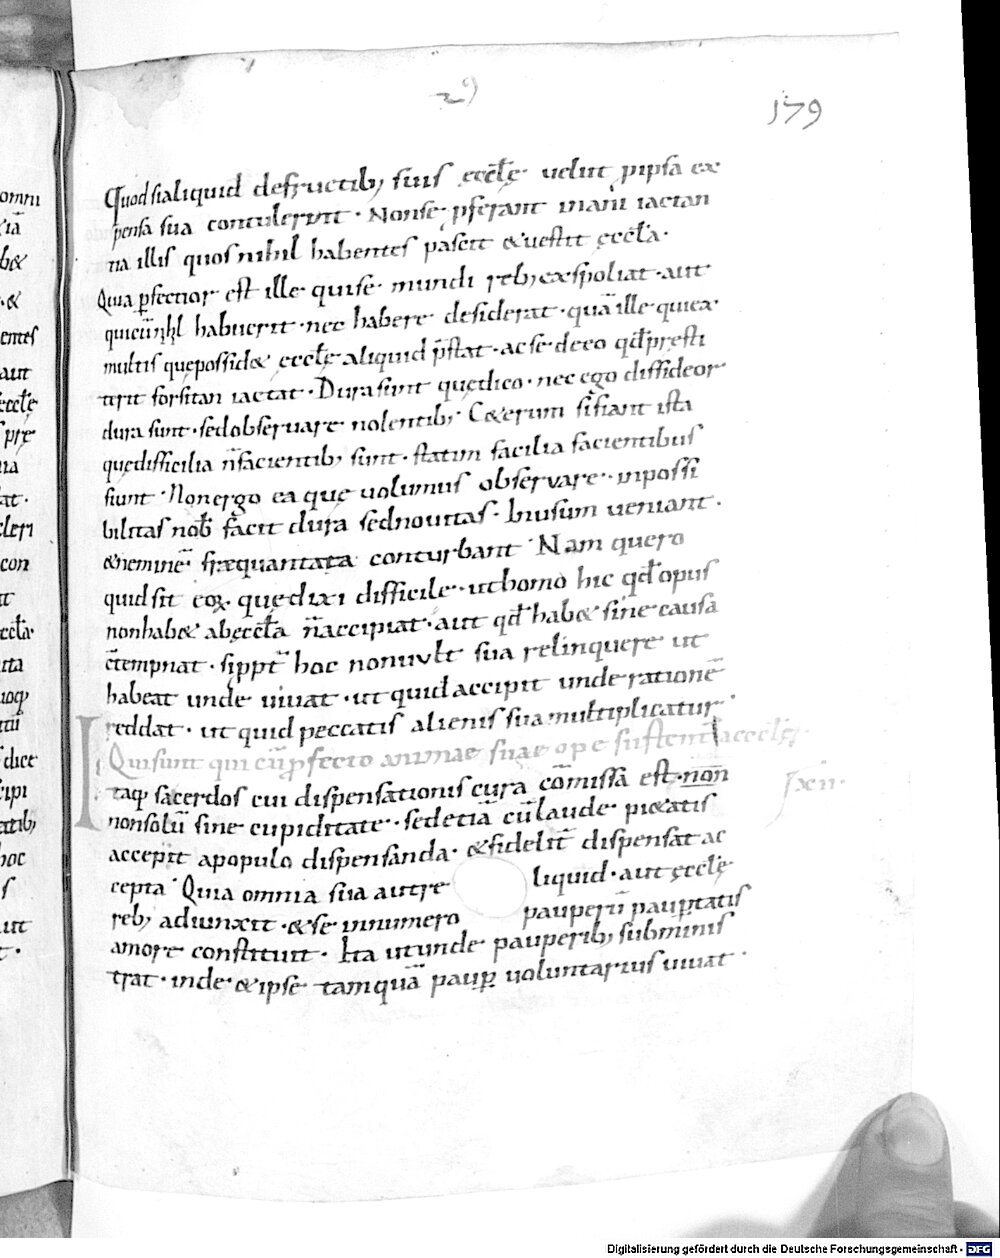 29
179
Quod si aliquid defructib; suis eccłę velut p ipsa ex
pensa sua contulerint · Nonse pferant inani iactan
tia illis quos nihil habentes pascit & vestit ęccła ·
Quia pfectior est ille quise mundi reb; exspoliat · aut
qui cū nihil habuerit · nec habere desiderat · quā ille qui ex
multis que possid& eccłę aliquid pstat · ac se de eo qđ presti
terit forsitan iactat · Dura sunt quę dico · nec ego diffideor
dura sunt · sed observare nolentib; C&erum si fiant ista
quę difficilia ñ facientib; sunt · statim facilia facientibus
fiunt · Non ergo ea que volumus observare · inpossi
bilitas nob̄ facit dura sed novitas · In usum veniant ·
& neminē frequentata conturbant · Nam quero
quid sit eoꝝ quę dixi difficile · ut homo hic qđ opus
non hab& ab ęccła ñ accipiat · aut qđ hab& sine causa
ctempnat · si ppt̄ hoc non vult sua relinquere ut
habeat unde vivat · ut quid accipit unde rationē
reddat · ut quid peccatis alienis sua multiplicatur ·
Qui sunt qui cū pfecto animae suae ope sustent̄ ac ecclę ·
I taq; sacerdos cui dispensationis cura cōmissa est · non
non solū sine cupiditate · sed etiā cū laude pi&atis
accepit a populo dispensanda · & fidelit̄ dispensat ac
cepta · Quia omnia sua aut re liquid · aut ęccłę
reb; adiunxit · & se in numero pauperū pauptatis
amore constituit · Ita ut unde pauperib; subminis
trat · inde & ipse tamquā paup voluntarius vivat ·
omni
hoc
con
aut
Digitalisierung gefördert durch die Deutsche Forschungsgemeinschaft · DFG